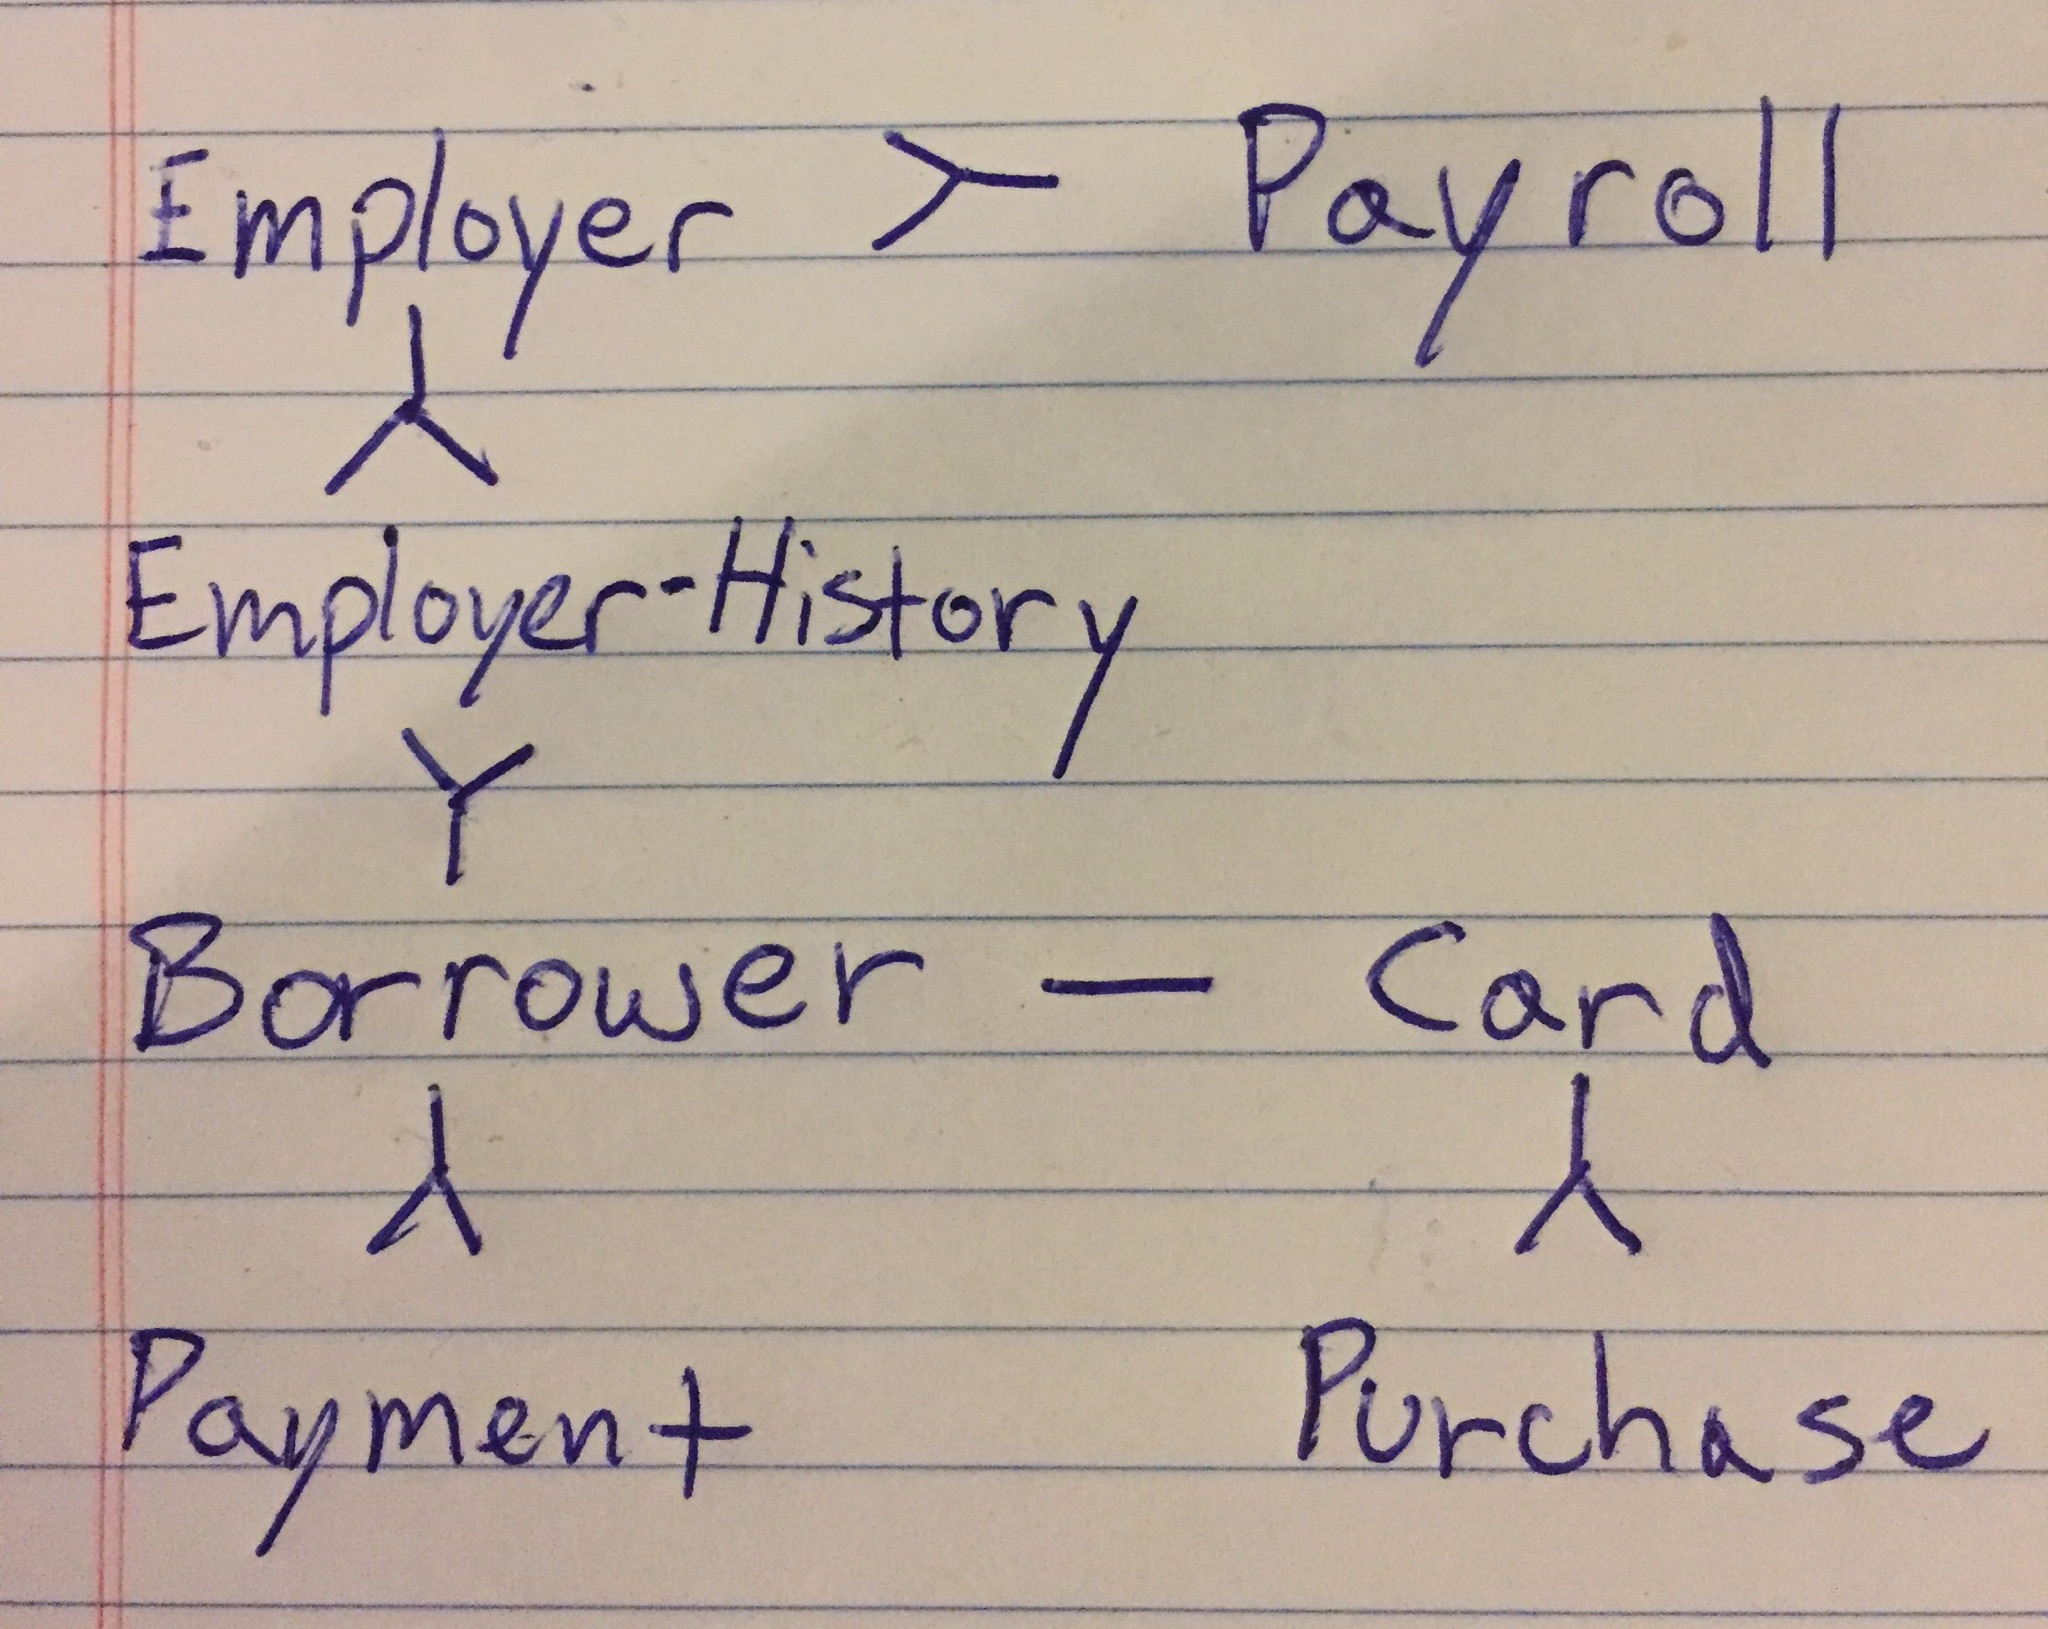 Employer Payroll
Employer-History
Borrower — Card
Payment Purchase